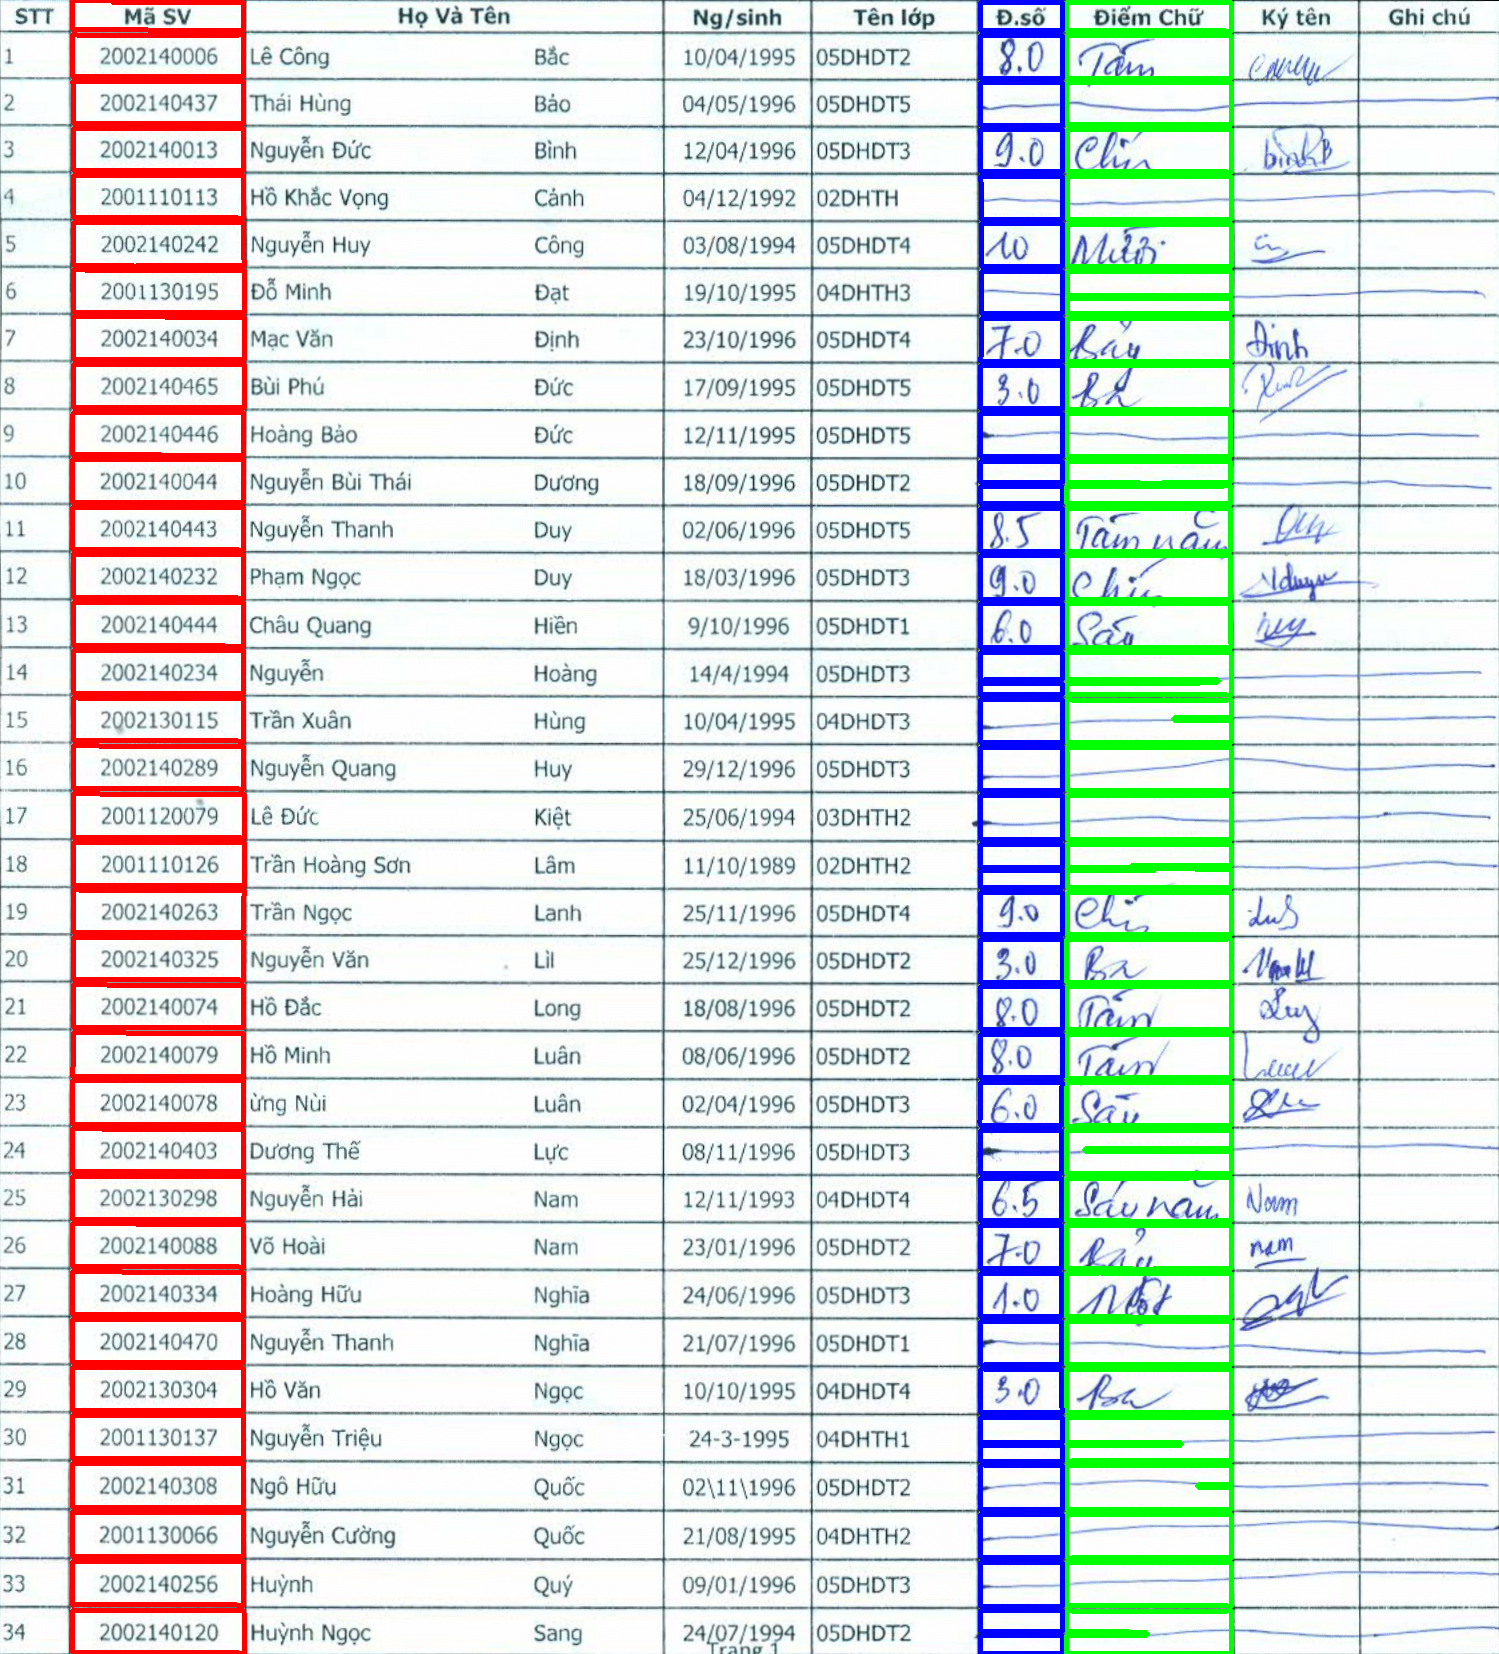 STT Mã SV Họ Và Tên Ng/sinh Tên lớp Đ.số Điểm Chữ Ký tên Ghi chú
1 2002140006 Lê Công Bắc 10/04/1995 05DHDT2 8.0 Tám
2 2002140437 Thái Hùng Bảo 04/05/1996 05DHDT5
3 2002140013 Nguyễn Đức Bình 12/04/1996 05DHDT3 9.0 Chín
4 2001110113 Hồ Khắc Vọng Cảnh 04/12/1992 02DHTH
5 2002140242 Nguyễn Huy Công 03/08/1994 05DHDT4 10 Mười
6 2001130195 Đỗ Minh Đạt 19/10/1995 04DHTH3
7 2002140034 Mạc Văn Định 23/10/1996 05DHDT4 7.0 Bảy Định
8 2002140465 Bùi Phú Đức 17/09/1995 05DHDT5 3.0 Ba
9 2002140446 Hoàng Bảo Đức 12/11/1995 05DHDT5
10 2002140044 Nguyễn Bùi Thái Dương 18/09/1996 05DHDT2
11 2002140443 Nguyễn Thanh Duy 02/06/1996 05DHDT5 8.5 Tám năm
12 2002140232 Phạm Ngọc Duy 18/03/1996 05DHDT3 9.0 Chín
13 2002140444 Châu Quang Hiền 9/10/1996 05DHDT1 6.0 Sáu
14 2002140234 Nguyễn Hoàng 14/4/1994 05DHDT3
15 2002130115 Trần Xuân Hùng 10/04/1995 04DHDT3
16 2002140289 Nguyễn Quang Huy 29/12/1996 05DHDT3
17 2001120079 Lê Đức Kiệt 25/06/1994 03DHTH2
18 2001110126 Trần Hoàng Sơn Lâm 11/10/1989 02DHTH2
19 2002140263 Trần Ngọc Lanh 25/11/1996 05DHDT4 9.0 Chín
20 2002140325 Nguyễn Văn Lil 25/12/1996 05DHDT2 3.0 Ba
21 2002140074 Hồ Đắc Long 18/08/1996 05DHDT2 8.0 Tám
22 2002140079 Hồ Minh Luân 08/06/1996 05DHDT2 8.0 Tám
23 2002140078 ừng Nùi Luân 02/04/1996 05DHDT3 6.0 Sáu
24 2002140403 Dương Thế Lực 08/11/1996 05DHDT3
25 2002130298 Nguyễn Hải Nam 12/11/1993 04DHDT4 6.5 Sáu năm Nam
26 2002140088 Võ Hoài Nam 23/01/1996 05DHDT2 7.0 Bảy nam
27 2002140334 Hoàng Hữu Nghĩa 24/06/1996 05DHDT3 1.0 Một
28 2002140470 Nguyễn Thanh Nghĩa 21/07/1996 05DHDT1
29 2002130304 Hồ Văn Ngọc 10/10/1995 04DHDT4 3.0 Ba
30 2001130137 Nguyễn Triệu Ngọc 24-3-1995 04DHTH1
31 2002140308 Ngô Hữu Quốc 02\11\1996 05DHDT2
32 2001130066 Nguyễn Cường Quốc 21/08/1995 04DHTH2
33 2002140256 Huỳnh Quý 09/01/1996 05DHDT3
34 2002140120 Huỳnh Ngọc Sang 24/07/1994 05DHDT2
Trang 1